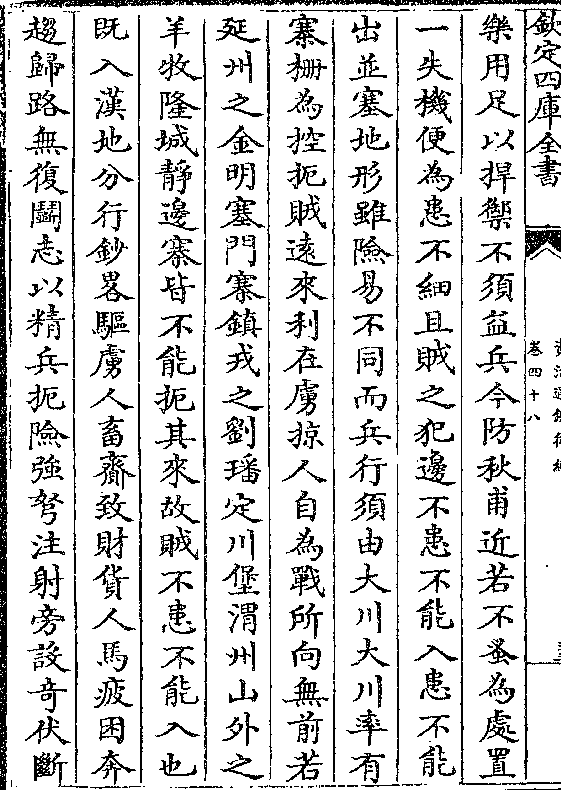 欽定四庫全書
卷四十八
樂用足以捍禦不須益兵今防秋甫近若不蚤為處置
一失機便為患不細且賊之犯邊不患不能入患不能
出並塞地形雖險易不同而兵行須由大川大川率有
寨柵為控扼賊遠來利在虜掠人自為戰所向無前若
延州之金明塞門寨鎮戎之劉璠定川堡渭州山外之
羊牧隆城靜邊寨皆不能扼其來故賊不患不能入也
既入漢地分行鈔畧驅虜人畜齎致財貨人馬疲困奔
趨歸路無復鬬志以精兵扼險強弩注射旁設奇伏斷